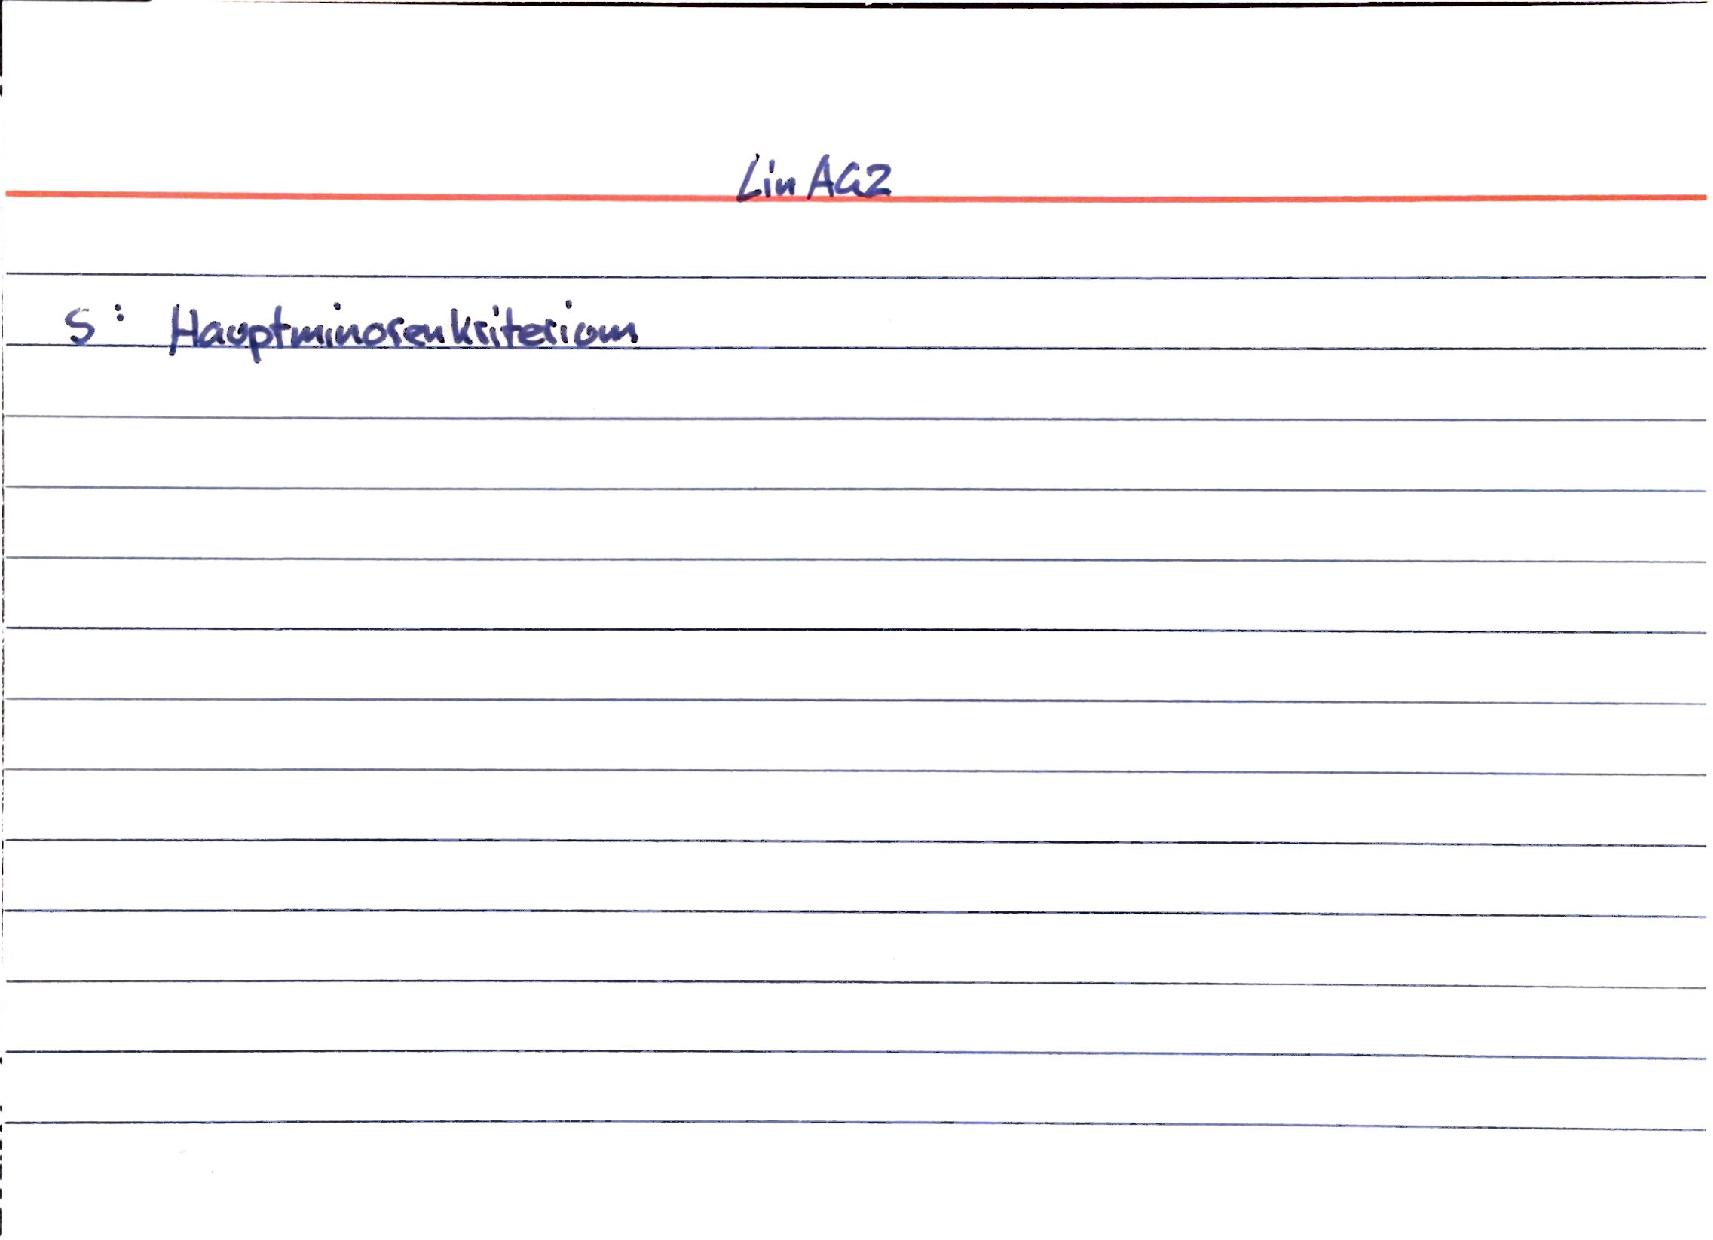 LinAG2
S: Hauptminorenkriterium